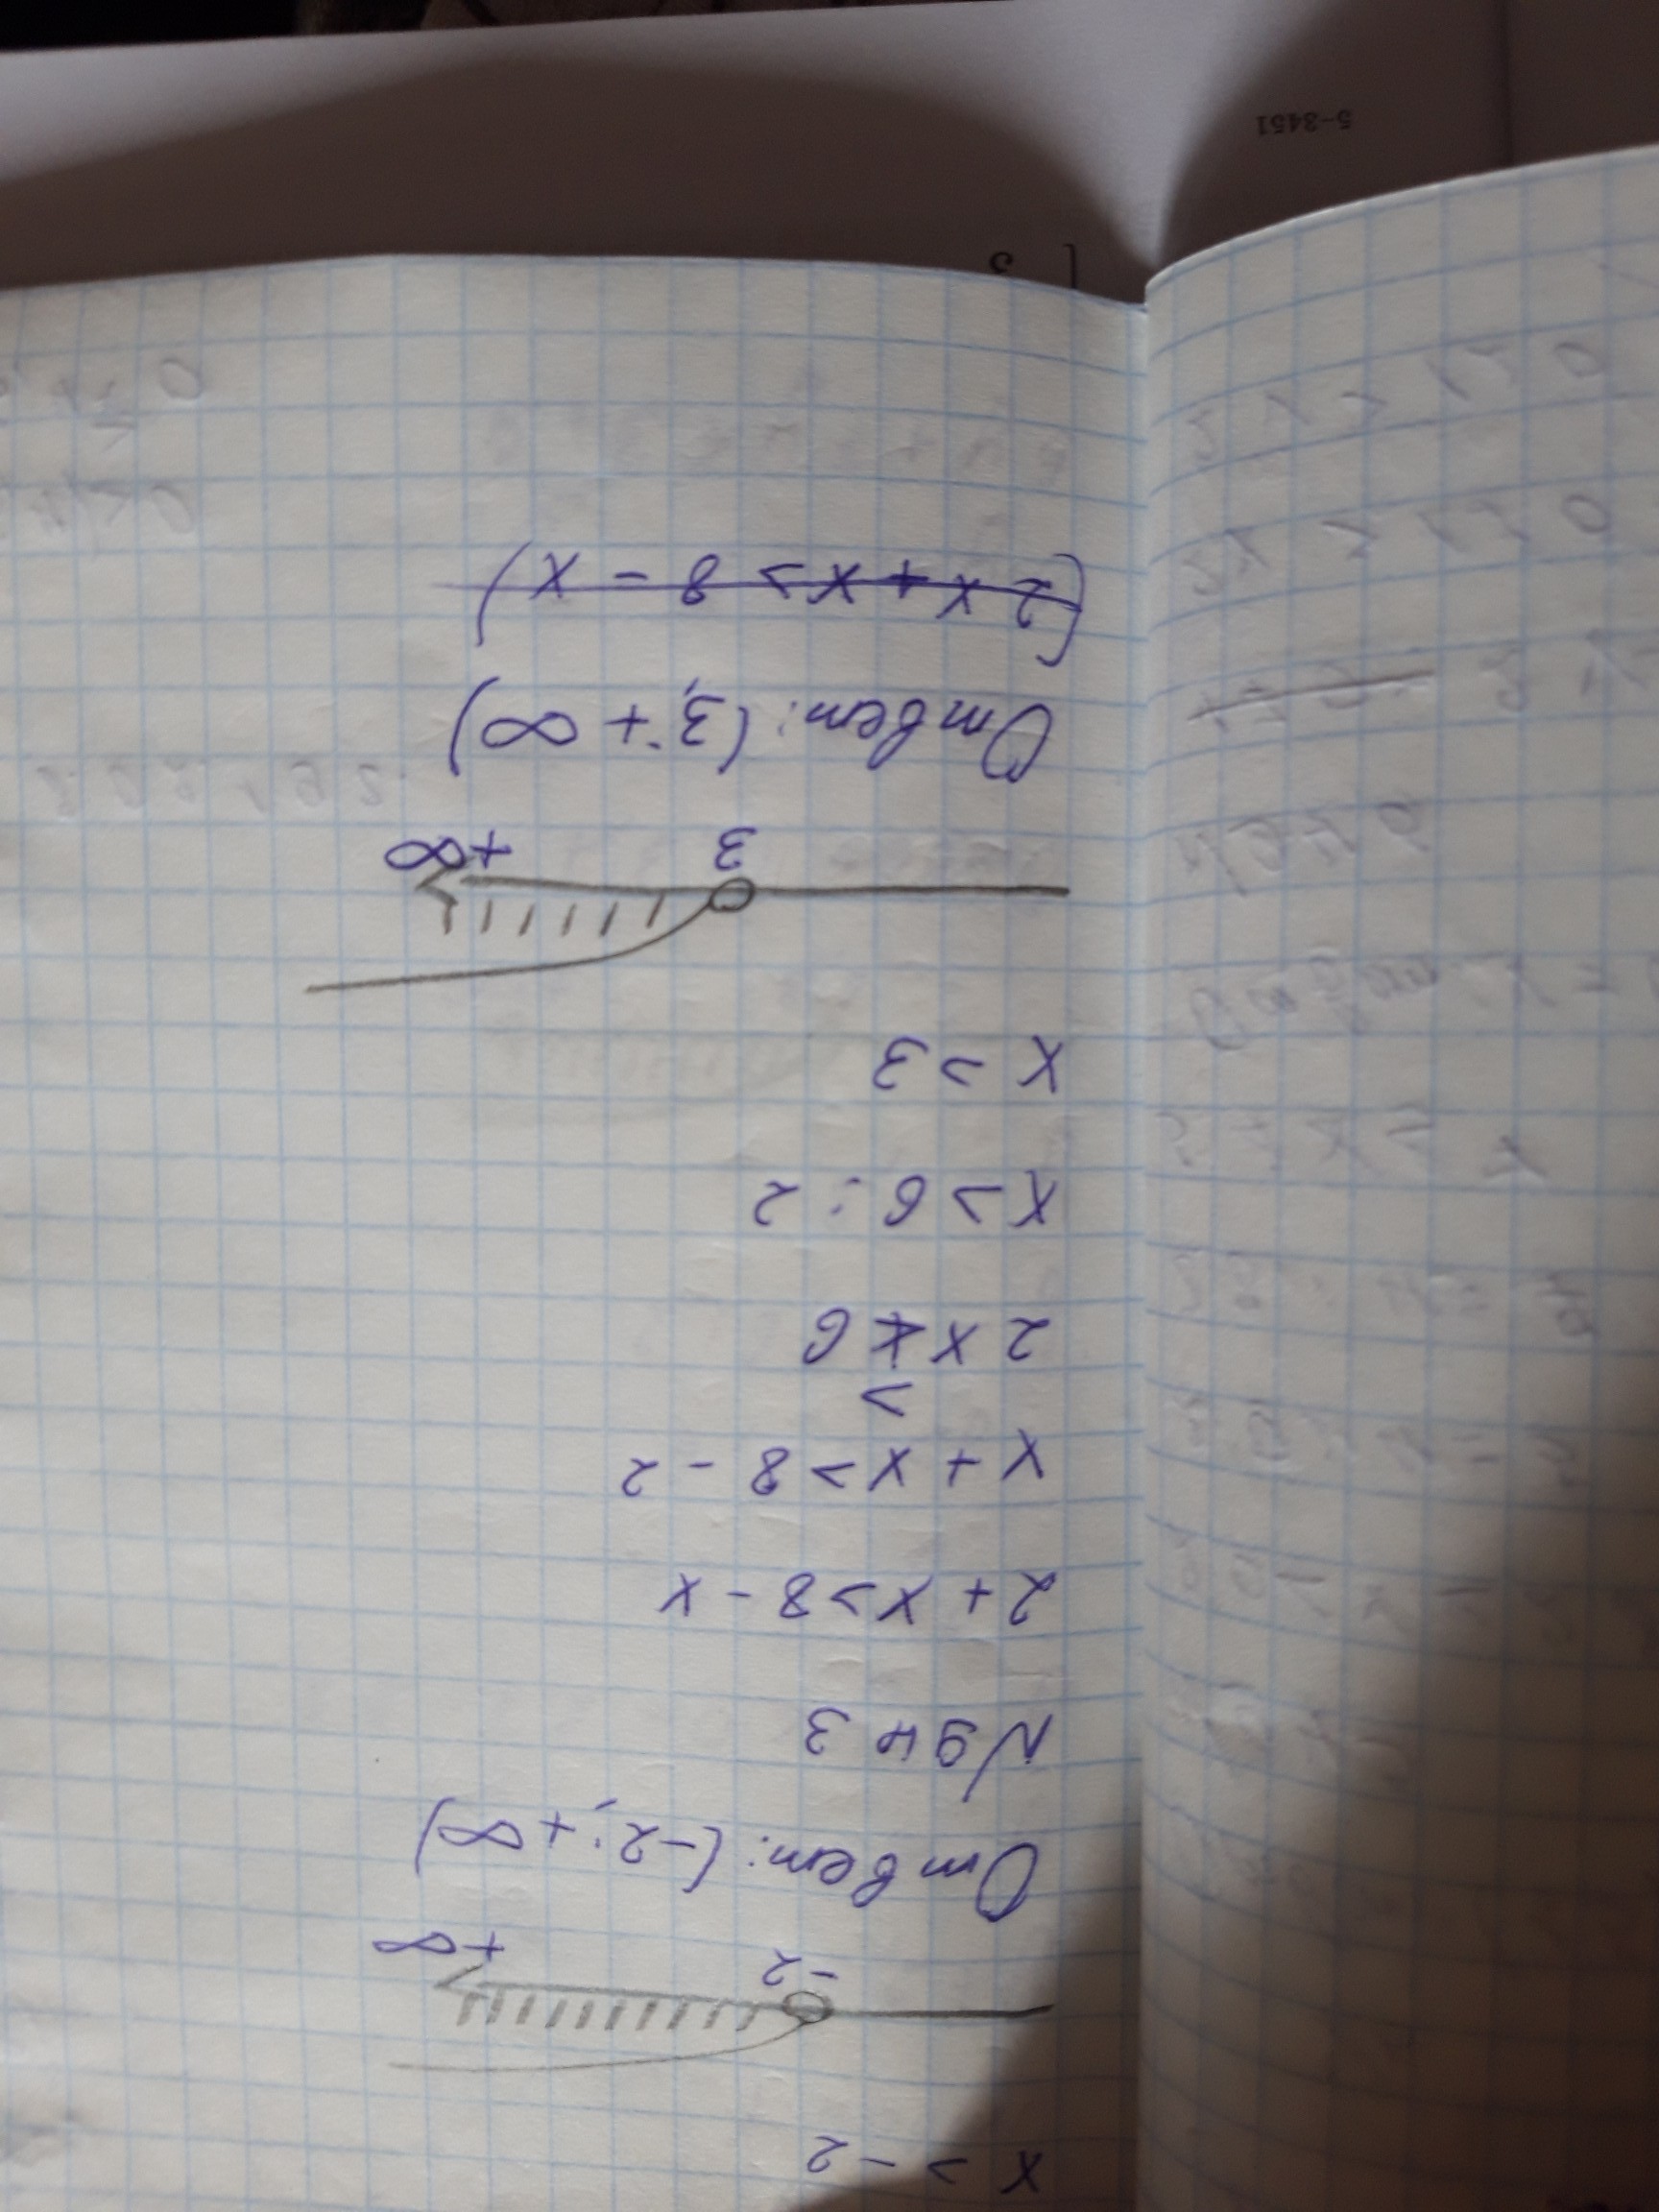 x > -2
-2 +∞
Ответ: (-2; +∞)
N 943
2 + x > 8 - x
x + x > 8 - 2
>
2x < 6
x > 6 : 2
x > 3
3 +∞
Ответ: (3; +∞)
(2x + x > 8 - x)
5-3451